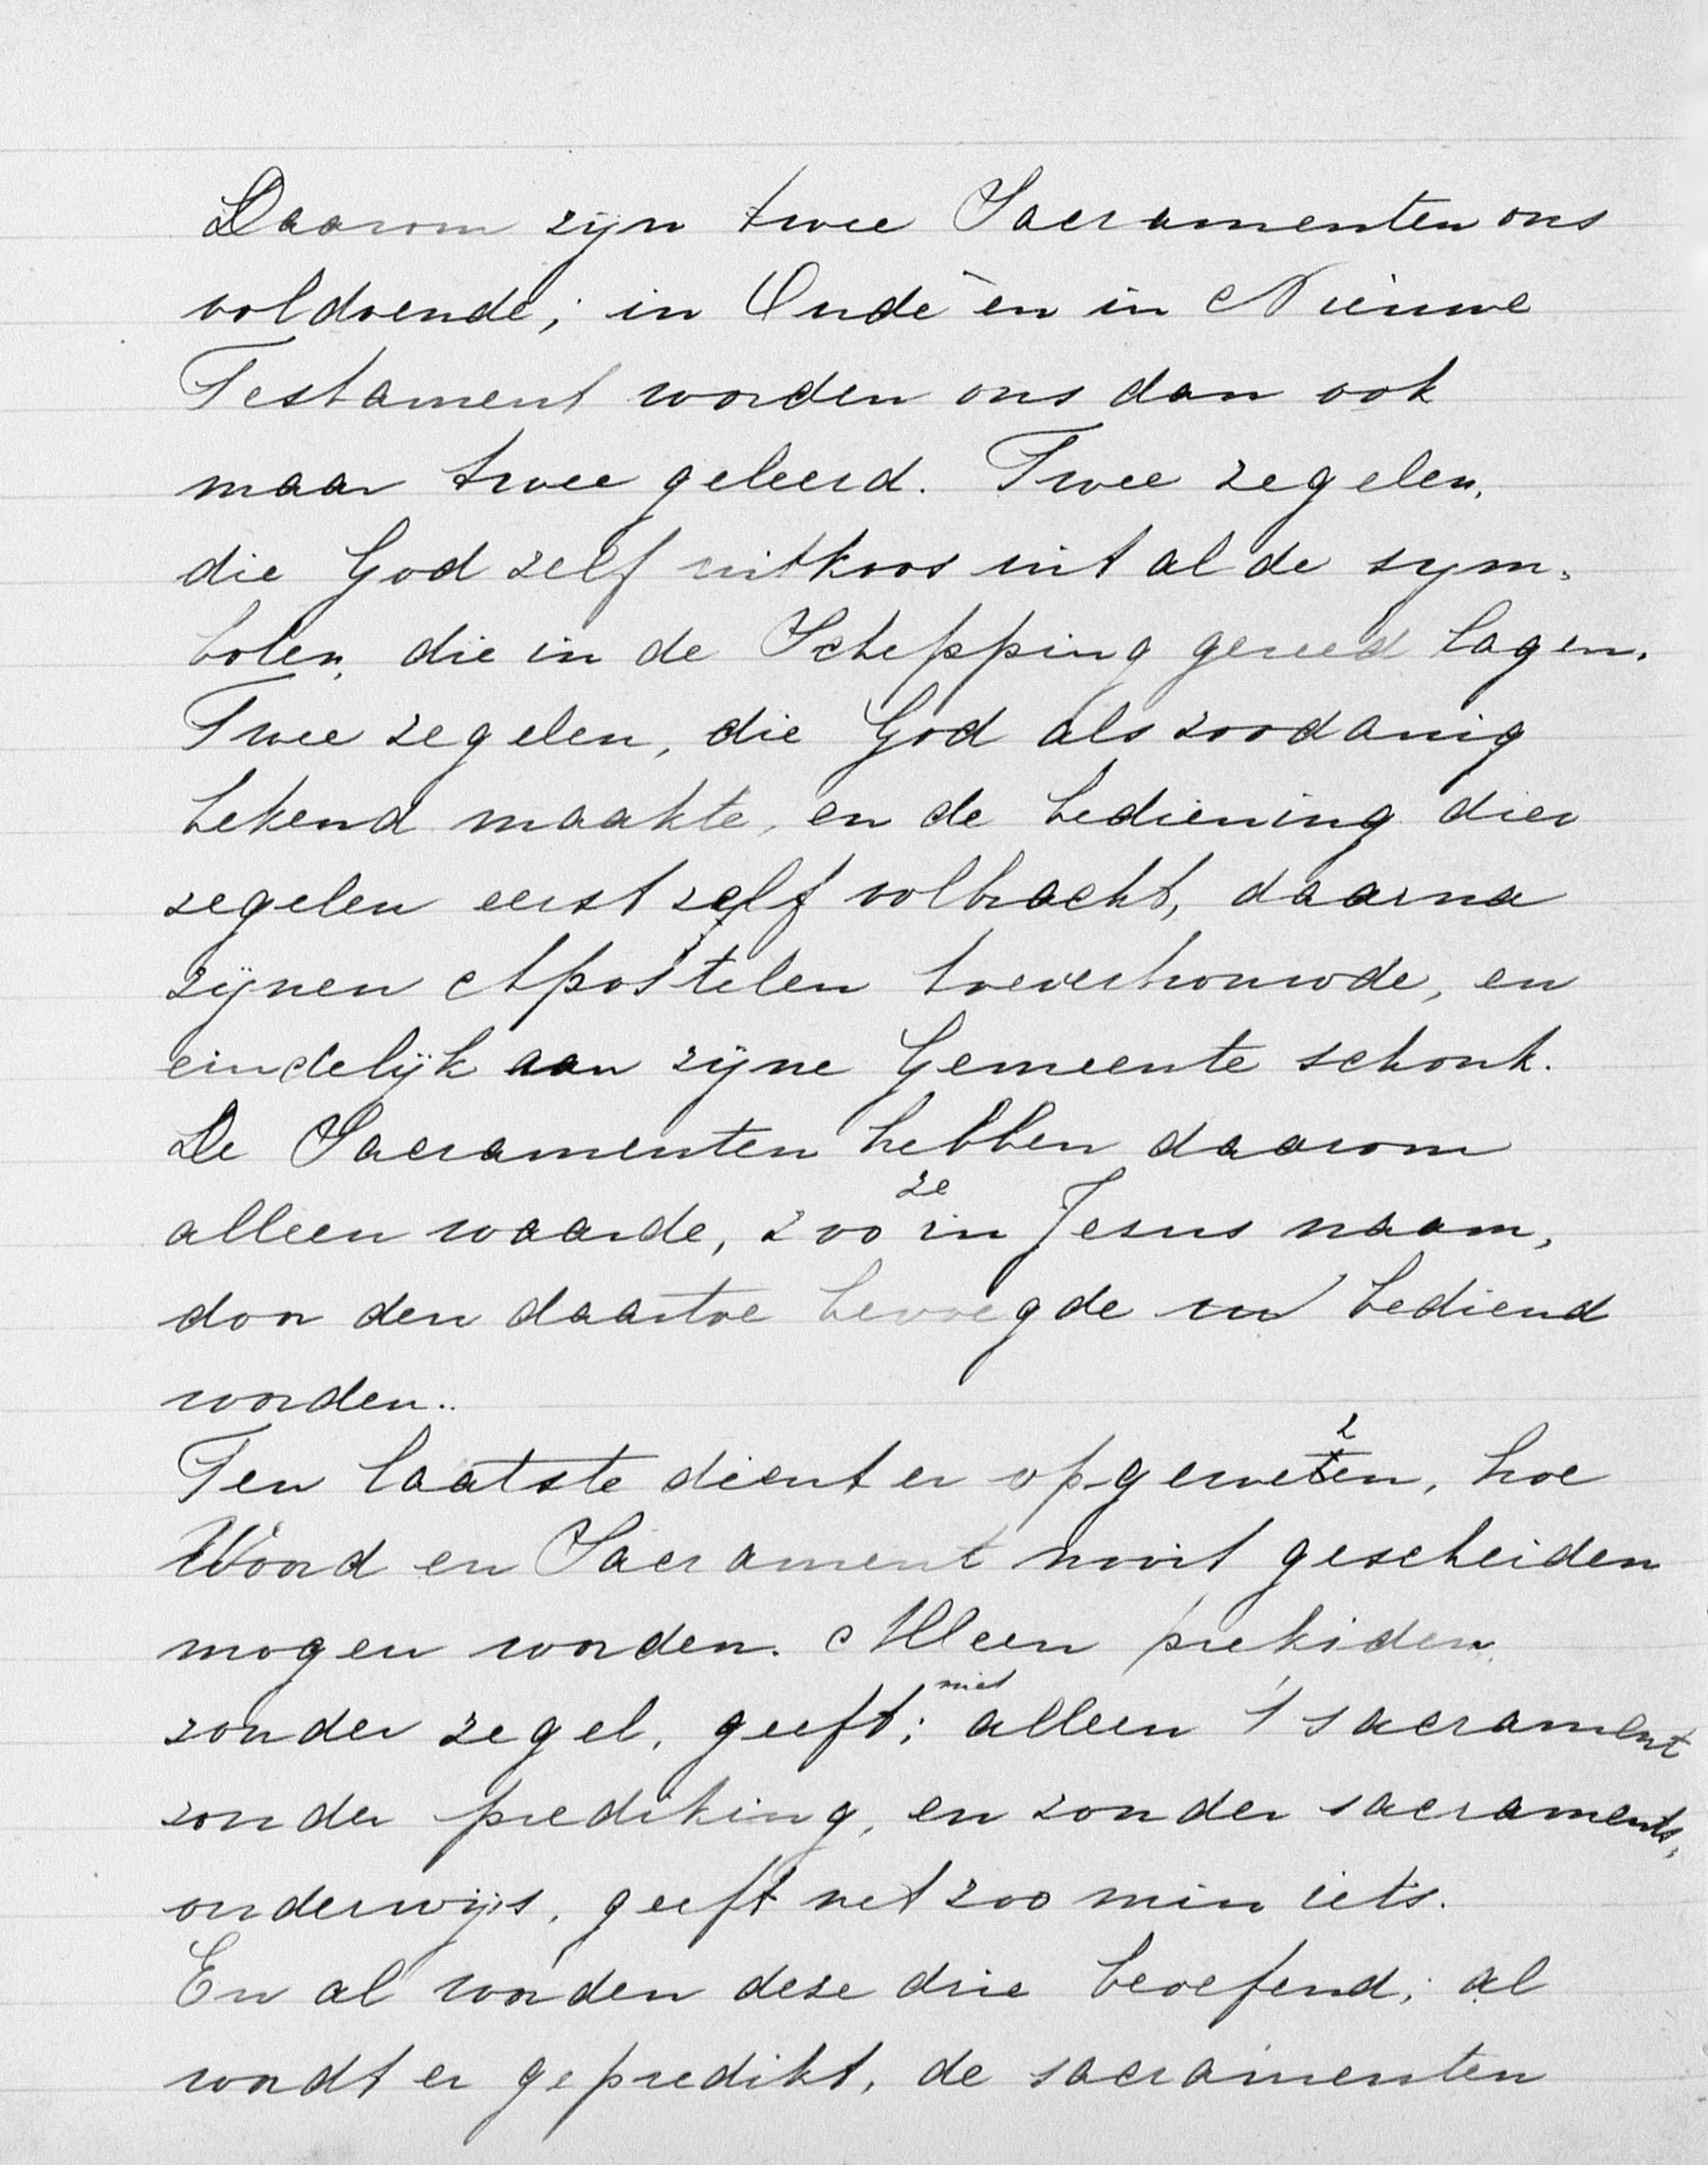 Daarom zijn twee Sacramenten ons
voldoende; in Oude èn in Nieuwe
Testament worden ons dan ook
maar twee geleerd. Twee zegelen,
die God zelf uitkoos uit al de sym-
bolen, die in de Schepping gereed lagen.
Twee zegelen, die God als zoodanig
bekend maakte, en de bediening dier
zegelen eerst zelf volbracht, daarna
zijnen Apostelen toevertrouwde, en
eindelijk aan zijne Gemeente schonk.
De Sacramenten hebben daarom
alleen waarde, zoo ze in Jezus naam,
door den daartoe bevoegde bediend
worden..
Ten laatste dient er op gewezen, hoe
Woord en Sacrament nooit gescheiden
mogen worden. Alleen prekiden,
zonder zegel, geeft niet; alleen 't sacrament
zonder prediking, en zonder sacraments-
onderwijs, geeft net zoo min iets.
En al worden deze drie beoefend; al
wordt er gepredikt, de sacramenten